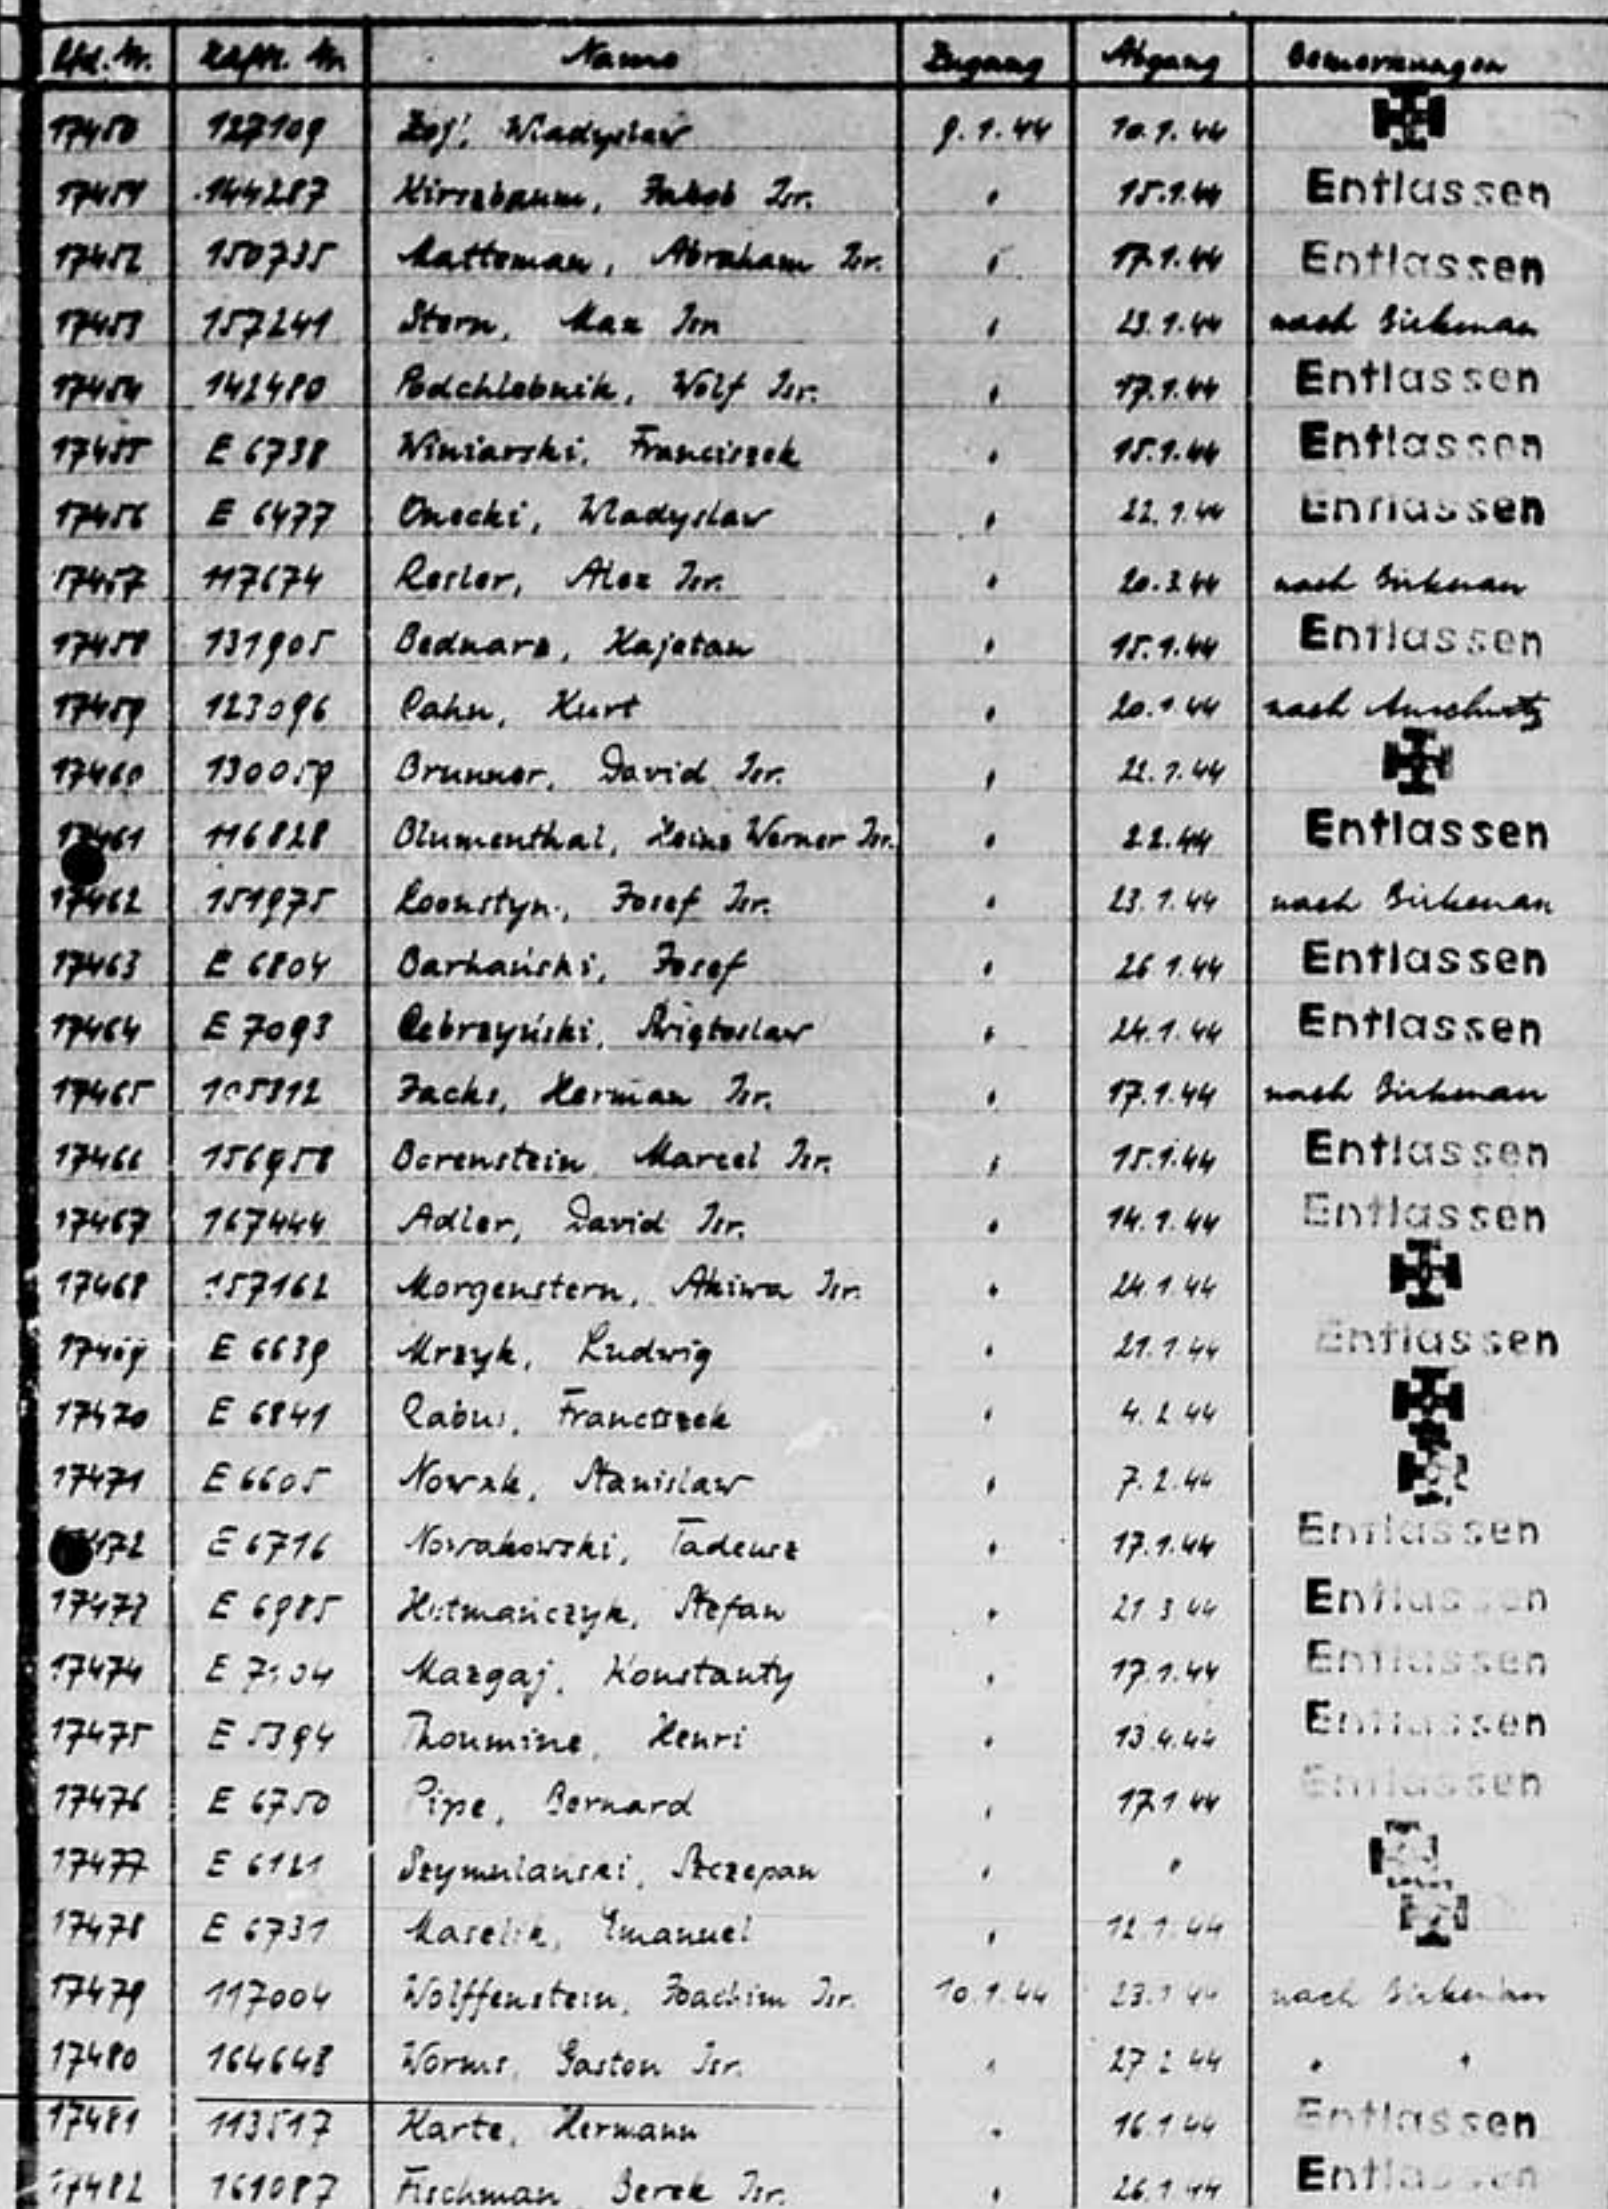 Lfd. Nr. Häftl. Nr. Name Zugang Abgang Bemerkungen
17450 127109 Wladyslaw 9.1.44 10.1.44
17451 144287 Hirszbaum, Jakob Isr. " 15.1.44 Entlassen
17452 150735 Abraham Isr. " 17.1.44 Entlassen
17453 157241 Stern, Max Isr. " 23.1.44 nach Birkenau
17454 142480 Podchlebnik, Wolf Isr. " 17.1.44 Entlassen
17455 E 6738 Winiarski, Franciszek " 15.1.44 Entlassen
17456 E 6477 Wladyslaw " 22.1.44 Entlassen
17457 117674 Resler, Alex Isr. " 20.3.44 nach Birkenau
17458 131905 Bednarz, Kajetan " 15.1.44 Entlassen
17459 123096 Cahn, Kurt " 20.1.44 nach Auschwitz
17460 130059 Brunner, David Isr. " 22.1.44
17461 116828 Blumenthal, Heinz Werner Isr. " 2.2.44 Entlassen
17462 151975 Josef Isr. " 23.1.44 nach Birkenau
17463 E 6804 Barhański, Josef " 26.1.44 Entlassen
17464 E 7093 " 24.1.44 Entlassen
17465 105312 Herman Isr. " 17.1.44 nach Birkenau
17466 156958 Borenstein, Marcel Isr. " 15.1.44 Entlassen
17467 167444 Adler, David Isr. " 14.1.44 Entlassen
17468 157162 Morgenstern, Akiwa Isr. " 24.1.44
17469 E 6639 Mrzyk, Ludwig " 21.1.44 Entlassen
17470 E 6841 Franciszek " 4.2.44
17471 E 6605 Nowak, Stanislaw " 7.2.44
17472 E 6716 Nowakowski, Tadeusz " 17.1.44 Entlassen
17473 E 6985 Hutmańczyk, Stefan " 21.3.44 Entlassen
17474 E 7104 Mazgaj, Konstanty " 17.1.44 Entlassen
17475 E 5394 Thoumine, Henri " 13.4.44 Entlassen
17476 E 6750 Pipe, Bernard " 17.1.44 Entlassen
17477 E 6121 Szczepan " "
17478 E 6731 Emanuel " 12.1.44
17479 117004 Wolffenstein, Joachim Isr. 10.1.44 23.1.44 nach Birkenau
17480 164648 Worms, Gaston Isr. " 27.2.44 " "
17481 113517 Karte, Hermann " 16.1.44 Entlassen
17482 161087 Fischman, Berek Isr. " 26.1.44 Entlassen